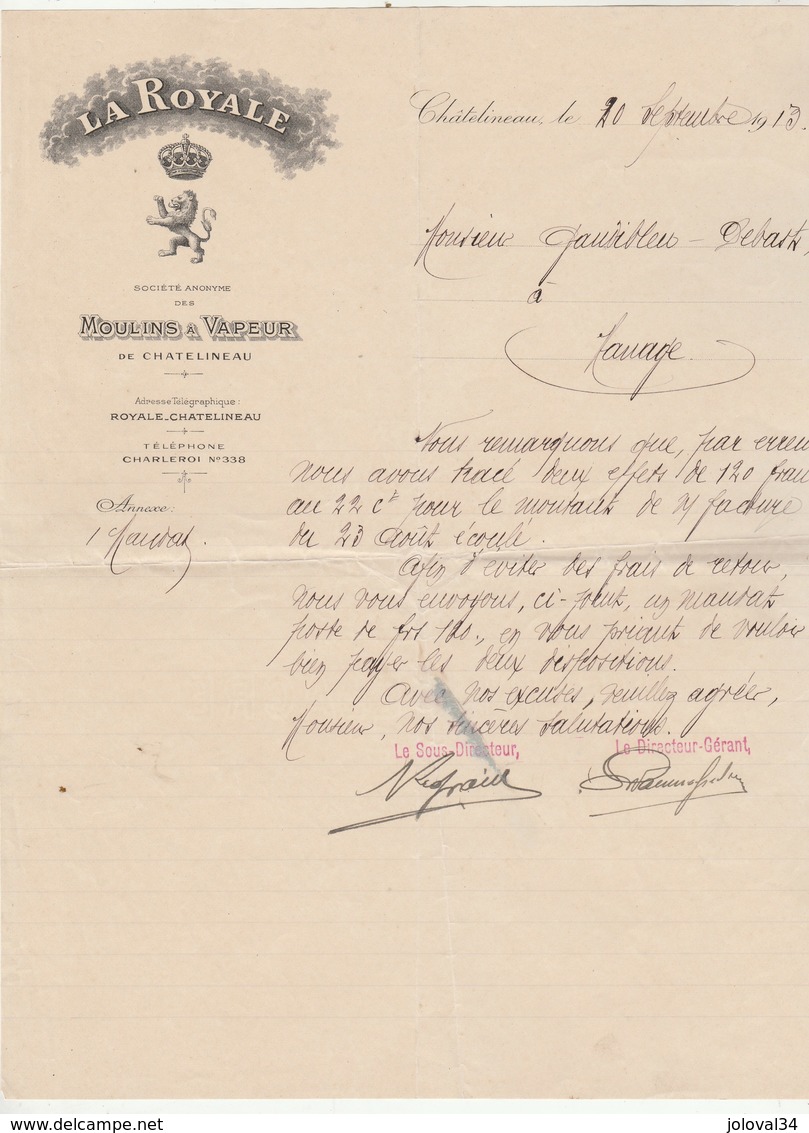 LA ROYALE
SOCIÉTÉ ANONYME
DES
MOULINS A VAPEUR
DE CHATELINEAU
Adresse Télégraphique :
ROYALE_CHATELINEAU
TÉLÉPHONE
CHARLEROI Nº 338
Annexe:
1 Mandat.
Châtelineau, le 20 Septembre 1913.
Monsieur Debast,
à
Manage.
Nous remarquons que, par erreu
nous avons tracé deux effets de 120 fran
au 22 ct pour le montant de n/ facture
du 23 août écoulé.
Afin d'éviter des frais de retour,
nous vous envoyons, ci-joint, un mandat
poste de frs 120., en vous priant de vouloir
bien payer les deux dispositions.
Avec nos excuses, veuillez agréer,
Monsieur, nos sincères salutations.
Le Sous-Directeur,
Le Directeur-Gérant,
joloval34